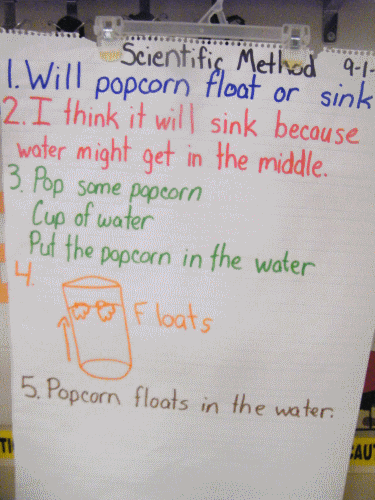 Scientific Method 9-1-
1. Will popcorn float or sink
2. I think it will sink because
water might get in the middle.
3. Pop some popcorn
Cup of water
Put the popcorn in the water
4.
Floats
5. Popcorn floats in the water.